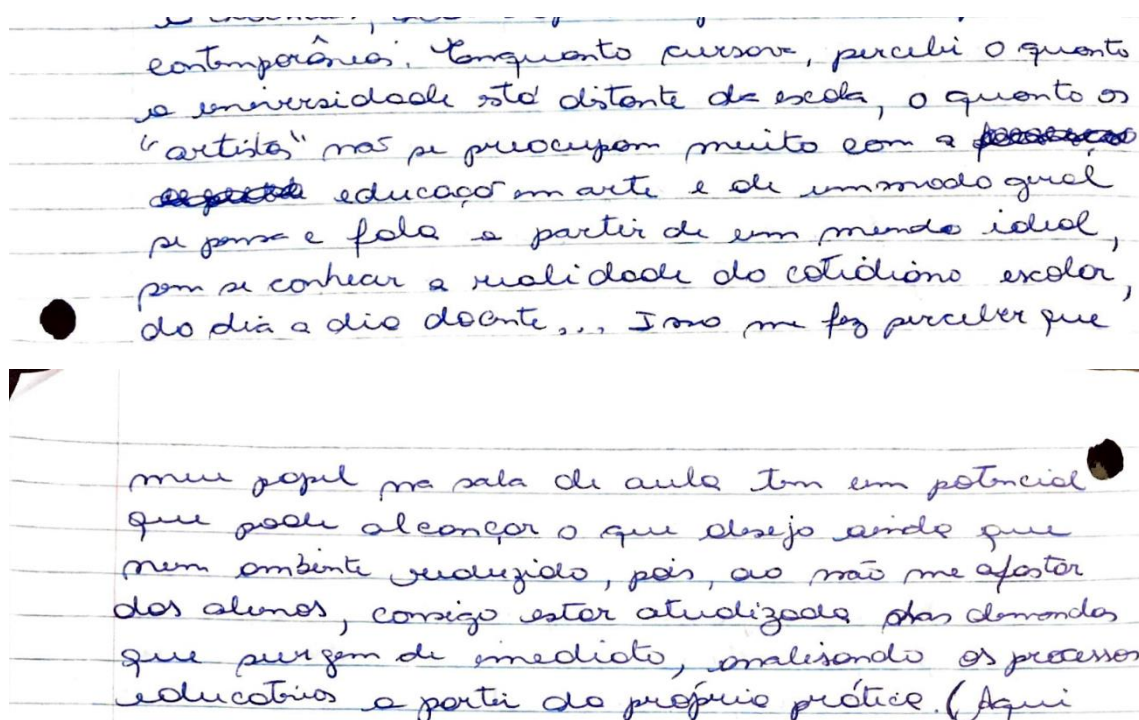 contemporânea. Enquanto cursava, percebi o quanto
a universidade está distante da escola, o quanto os
"artistas" não se preocupam muito com a
educação em arte e de um modo geral
se pensa e fala a partir de um mundo ideal,
sem se conhecer a realidade do cotidiano escolar,
do dia a dia docente... Isso me fez perceber que
meu papel na sala de aula tem um potencial
que pode alcançar o que desejo ainda que
num ambiente reduzido, pois, ao não me afastar
dos alunos, consigo estar atualizada das demandas
que surgem de imediato, analisando os processos
educativos a partir da própria prática. (Aqui